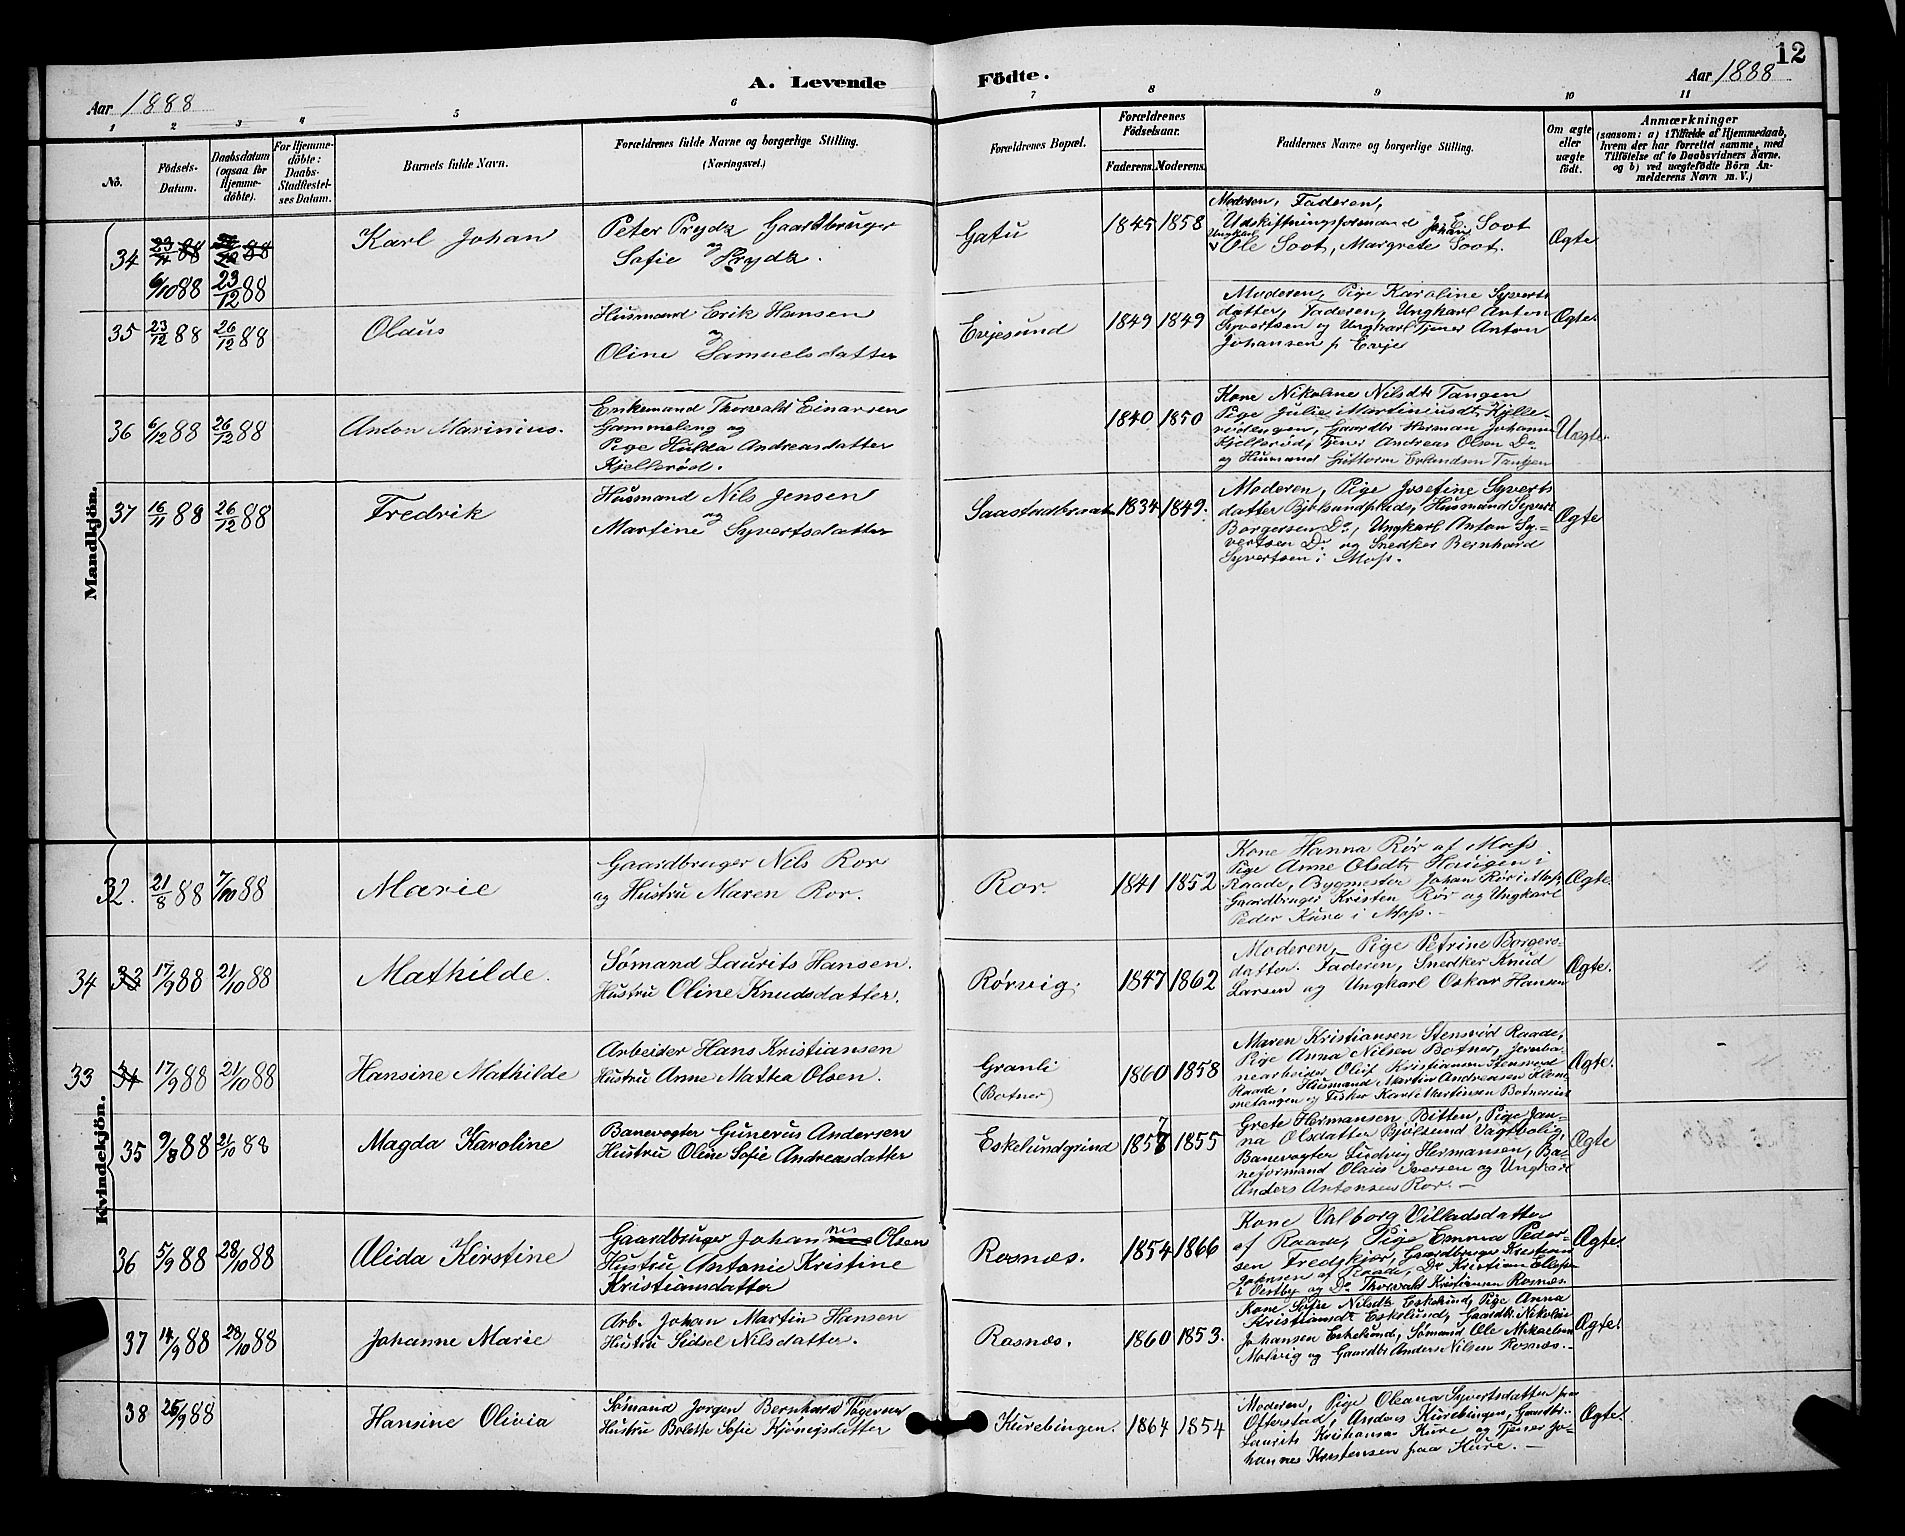 12
Aar 1888
A. Levende Födte.
Aar 1888
1 2 3 4 5 6 7 8 9 10 11
No.
Födsels-
Datum.
Daabsdatum
(ogsaa for
Hjemme-
döbte).
For Hjemme-
döbte:
Daabs-
Stadfæstel-
ses Datum.
Barnets fulde Navn.
Forældrenes fulde Navne og borgerlige Stilling.
(Næringsvei.)
Forældrenes Bopæl.
Forældrenes
Födselsaar.
Faderens. Moderens.
Faddernes Navne og borgerlige Stilling.
Om ægte
eller
uægte
födt.
Anmærkninger
(saasom: a) i Tilfælde af Hjemmedaab,
hvem der har forrettet samme, med
Tilföielse af to Daabsvidners Navne,
og b) ved uægtefödte Börn An-
melderens Navn m. V.)
Mandkjön.
34 23/11 88
6/10 88 23/12 88
Karl Johan
Peter Prydz Gaardbruger
og
Sofie Prydz.
Gatu
1845 1858
Moderen, Faderen,
Udskiftningsformand Johan E. Soot
Ungkarl
Ole Soot, Margrete Soot.
Ægte
35 23/12 88 26/12 88
Olaus
Husmand Erik Hansen
og
Oline Samuelsdatter
Evjesund
1849 1849
Moderen, Pige Karoline Syverts
datter, Faderen, Ungkarl Anton
Syvertsen og Ungkarl Tjener Anton
Johansen p. Evje
Ægte.
36 6/12 88 26/12 88
Anton Marinius.
Enkemand Thorvald Einarsen
Gammeleng og
Pige Hulda Andreasdatter
Kjellerød.
1840 1850
Kone Nikoline Nilsdt. Tangen
Pige Julie Martiniusdt. Kjelle-
rødengen, Gaardbr Herman Johannes
Kjellerød, Tjener Andreas Olsen Do
og Husmand Guttorm Erlandsen Tangen
Uægte.
37 16/11 88 26/12 88
Fredrik
Husmand Nils Jensen
og
Martine Syvertsdatter
Saastadbraaten
1834 1849.
Moderen, Pige Josefine Syverts
datter Bjölsundplads, Husmand Syvert
Borgersen Do, Ungkarl Anton Sy-
vertsen Do og Snedker Bernhard
Syvertsen i Moss.
Ægte
Kvindekjön.
32. 21/8 88 7/10 88
Marie
Gaardbruger Nils Ror
og Hustru Maren Ror.
Ror.
1841 1852
Kone Hanna Rør af Moss.
Pige Anne Olsdt. Haugen i
Raade, Bygmester Johan Rør i Moss,
Gaardbruger Kristen Rør og Ungkarl
Peder Kure i Moss.
Ægte.
34 33 17/9 88 21/10 88
Mathilde.
Sømand Laurits Hansen.
Hustru Oline Knudsdatter.
Rørvig.
1847 1862
Moderen, Pige Petrine Borgers-
datter. Faderen, Snedker Knud
Larsen og Ungkarl Oskar Hansen
Ægte.
33 34 17/9 88 21/10 88
Hansine Mathilde
Arbeider Hans Kristiansen
Hustru Anne Mathea Olsen.
Granli
(Botner)
1860 1858
Maren Kristiansen Stensrød Raade,
Pige Anna Nilsen Botner, Jernba-
nearbeider Oluf Kristiansen Stensrød
Raade, Husmand Martin Andreasen
metangen og Fisker Karl Martinsen Botnersund
Ægte.
35 9/8 88 21/10 88
Magda Karoline
Banevogter Gunerus Andersen
Hustru Oline Sofie Andreasdatter
Eskelundgrind
1857 1855
Grete Hermansen Bitten, Pige Jan-
na Olsdatter Bjölsund Vagtbolig,
Banevogter Ludvig Hermansen, Ba-
neformand Olaus Iversen og Ungkarl
Anders Antonsen Ror.
Ægte
36 5/9 88 28/10 88
Alida Kirstine
Gaardbruger Johannes Olsen
Hustru Antonie Kristine
Kristiansdatter
Rosnæs.
1854 1866
Kone Valborg Villadsdatter
af Raade, Pige Emma Peder-
sen Fredskjær, Gaardbruger Kristian
Johnsen af Raade, Do Kristian Olesen
i Vestby og Do Thorvald Kristiansen Rosnæs.
Ægte.
37 14/9 88 28/10 88
Johanne Marie
Arb. Johan Martin Hansen
Hustru Sidsel Nilsdatter.
Rosnæs.
1860 1853.
Kone Sofie Nilsdt. Eskelund, Pige Anna
Kristiansdt. Eskelund, Gaardbr. Nikolai
Johansen Eskelund, Sømand Ole Mikaelsen
Molvig og Gaardbr Anders Nilsen Rosnæs.
Ægte.
38 26/9 88
Hansine Olivia
Sømand Jørgen Bernhard
Hustru Bolette Sofie
Kurebingen.
1864 1854
Moderen, Pige Oleana Syvertsdatter fra
Ofterstad, Anders Kurebingen, Gaardbr.
Laurits Kristiansen Kure og Tjener Jo-
hannes Kristensen paa Kure.
Ægte.